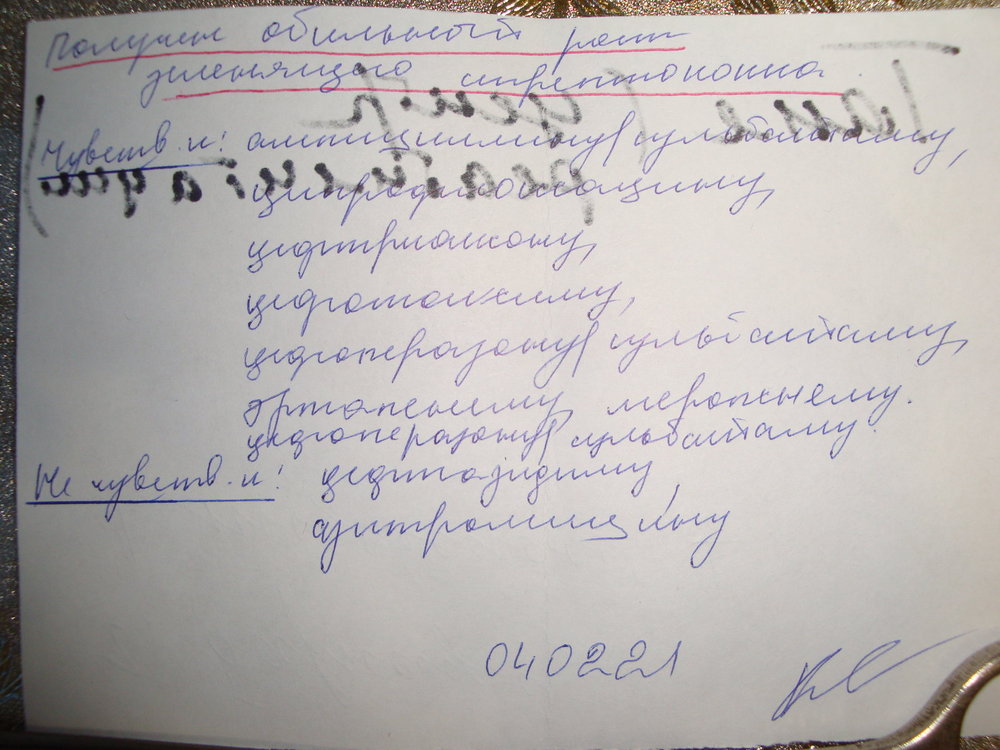 Получен обильный рост
зеленящего стрептококка
Чувств. к: ампициллину/сульбактаму,
ципрофлоксацину,
цефтриаксону,
цефотаксиму,
цефоперазону/сульбактаму,
эртапенему, меропенему.
цефоперазону/сульбактаму.
Не чувств. к: цефтазидиму,
азитромицину
040221